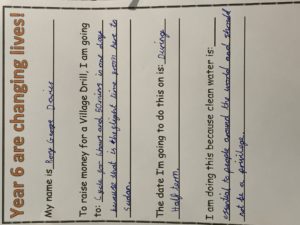 Year 6 are changing lives!
My name is Rory George Davies
To raise money for a Village Drill, I am going
to: Cycle for hours and 50 mins in one day
because that is the flight time from here to
Sudan.
The date I'm going to do this on is: During
Half term.
I am doing this because clean water is:
essential to people around the world and should
not be a privilege.